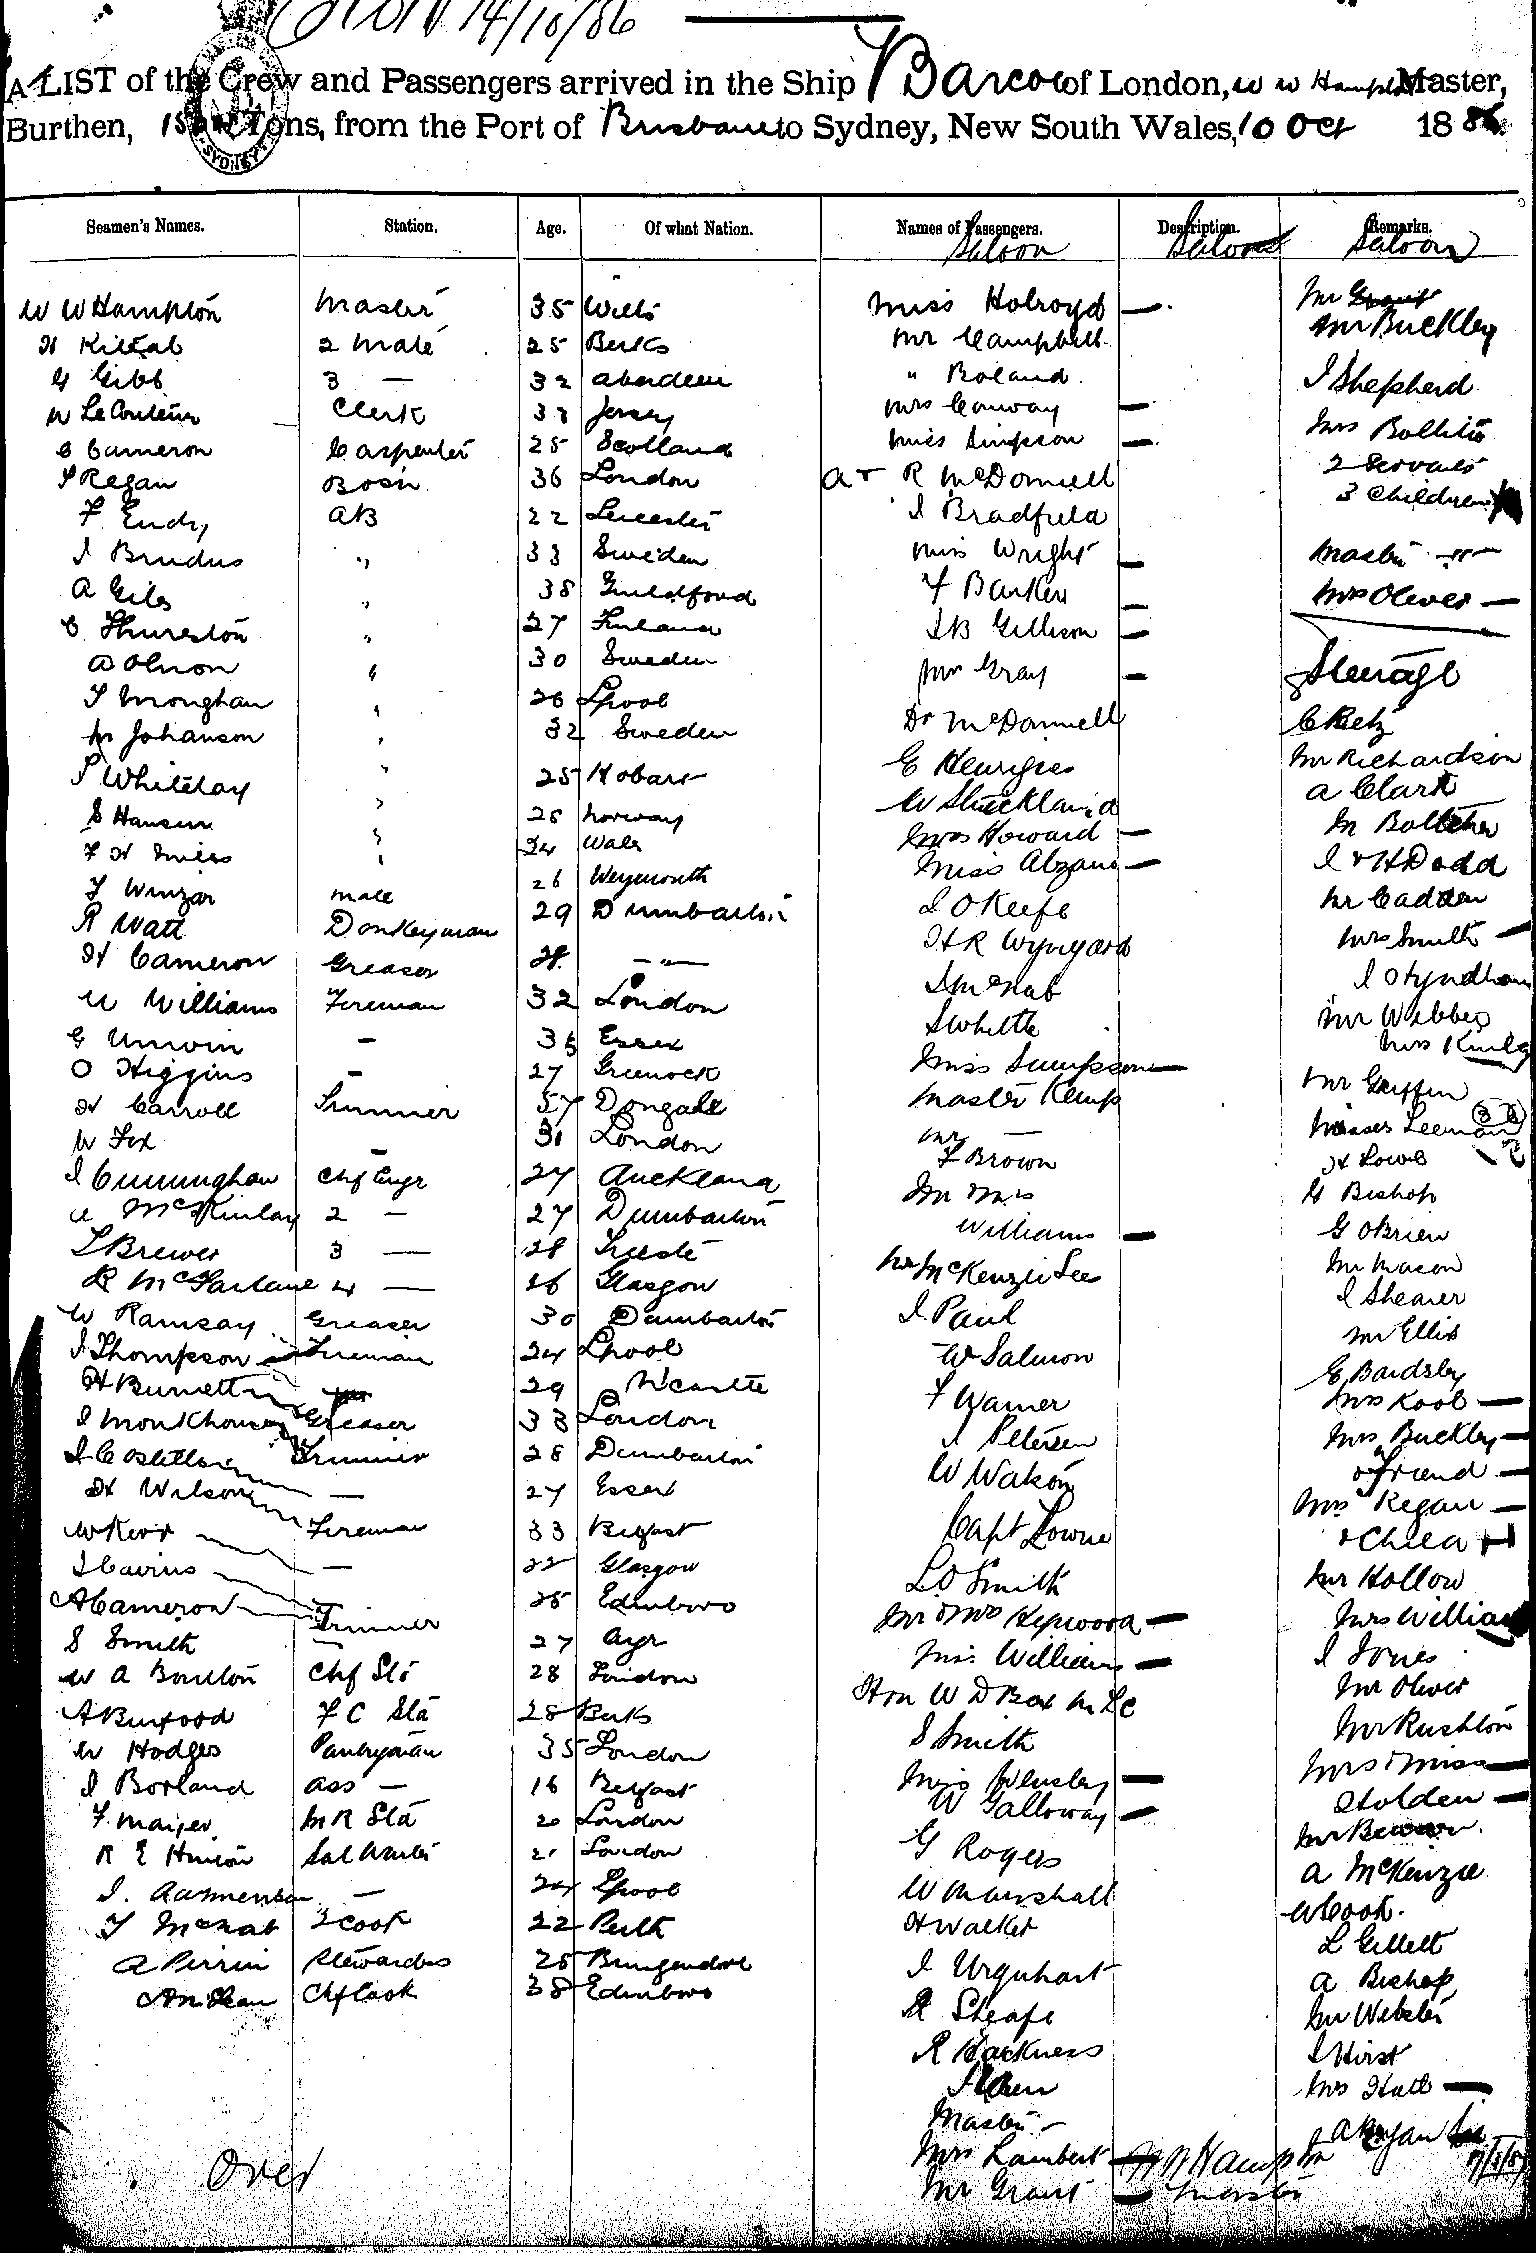 14/10/86
A LIST of the Crew and Passengers arrived in the Ship Barcoo of London, W W Hampton Master,
Burthen, Tons, from the Port of Brisbane to Sydney, New South Wales, 10 Oct 1886
Seamen's Names. Station. Age. Of what Nation. Names of Passengers. Description. Remarks.
Saloon Saloon Saloon
W W Hampton Master 35 Wilts Miss Holroyd — Mr Grant
H 2 Mate 25 Berks Mr Campbell Mr Buckley
G Gibb 3 — 32 Aberdeen " Boland J Shepherd
W LeCouteur Clerk 33 Jersey Mrs Conway — Mrs
C Cameron Carpenter 25 Scotland Miss Simpson — 2 Servants
J Regan Bosn 36 London A & R McDonnell 3 Children
F Endy AB 22 Leicester J Bradfield
J Brudus " 33 Sweden Miss Wright — Master —"—
A Giles " 38 Guildford F Barker — Mrs Oliver —
C Thurston " 27 Finland J B Gillison —
A Olsson " 30 Sweden Mr Gray — Steerage
T Monghan " 26 Lpool Dr McDonnell C Betz
M Johanson " 32 Sweden E Mr Richardson
J Whitelay " 25 Hobart W Strickland A Clark
S Hansen " 28 Norway Mrs Howard — M
F H Miles " 24 Wales Miss — J & H Dodd
F Winzar Mate 26 Weymouth J O Keefe Mr Cadden
R Watt Donkeyman 29 Dumbarton H R Wyngard Mrs Smith —
H Cameron Greaser 28 —"— J McNab J
W Williams Fireman 32 London S White Mr Webber
G Unwin — 35 Essex Miss Simpson — Mrs
O Higgins — 27 Greenock Master Kemp Mr Griffin
H Carroll Trimmer 37 Dongall Mr — Leeman
W Fox — 31 London F Brown H Lowe
J Cunningham Chf Engr 27 Auckland Mr & Mrs G Bishop
A McKinlay 2 — 27 Dumbarton Williams — G OBrien
T Brewer 3 — 28 Trieste Mr McKenzie Lees Mr Mason
R McFarlane 4 — 26 Glasgow J Paul J Shearer
W Ramsay Greaser 30 Dumbarton W Salmon Mr Ellis
J Thompson Fireman 24 Lpool F Warner E Bardsley
H Burnett 29 Ncastle J Petersen Mrs Koob —
J Monkhouse Greaser 33 London W Watson Mrs Buckley —
J Costello Trimmer 28 Dumbarton Capt Lowrie & Friend —
H Wilson — 27 Essex L O Smith Mrs Regan —
W Kerr Fireman 33 Belfast Mr & Mrs Heywood — & Child
J Cairns — 22 Glasgow Miss Williams — Mr Hollow
A Cameron Trimmer 25 Edinboro Hon W D Box MLC Mrs Williams
S Smith — 27 Ayr S Smith J Jones
W A Boulton Chf Std 28 London Miss Hensley — Mr Oliver
A Burford F C Std 28 Berks W Galloway — Mr Rushton
W Hodges Pantryman 35 London G Rogers Mrs & Miss —
J Borland Ass — 16 Belfast W Marshall Holden —
F. Maiyer M R Std 20 London H Walker Mr
R E Hinton Sal Waiter 21 London J Urquhart A McKenzie
J. — 24 Lpool R Sheafe W Cook.
F McNab 2 Cook 22 Perth R Hackness L Gillett
A Perrin Stewardess 25 Bungendore A Bishop
Chf Cook 38 Edinboro Master — Mr Webster
Mrs Lambert — J Hirst
Mr Grant — Mrs Hall —
W W Hampton
Master
Over